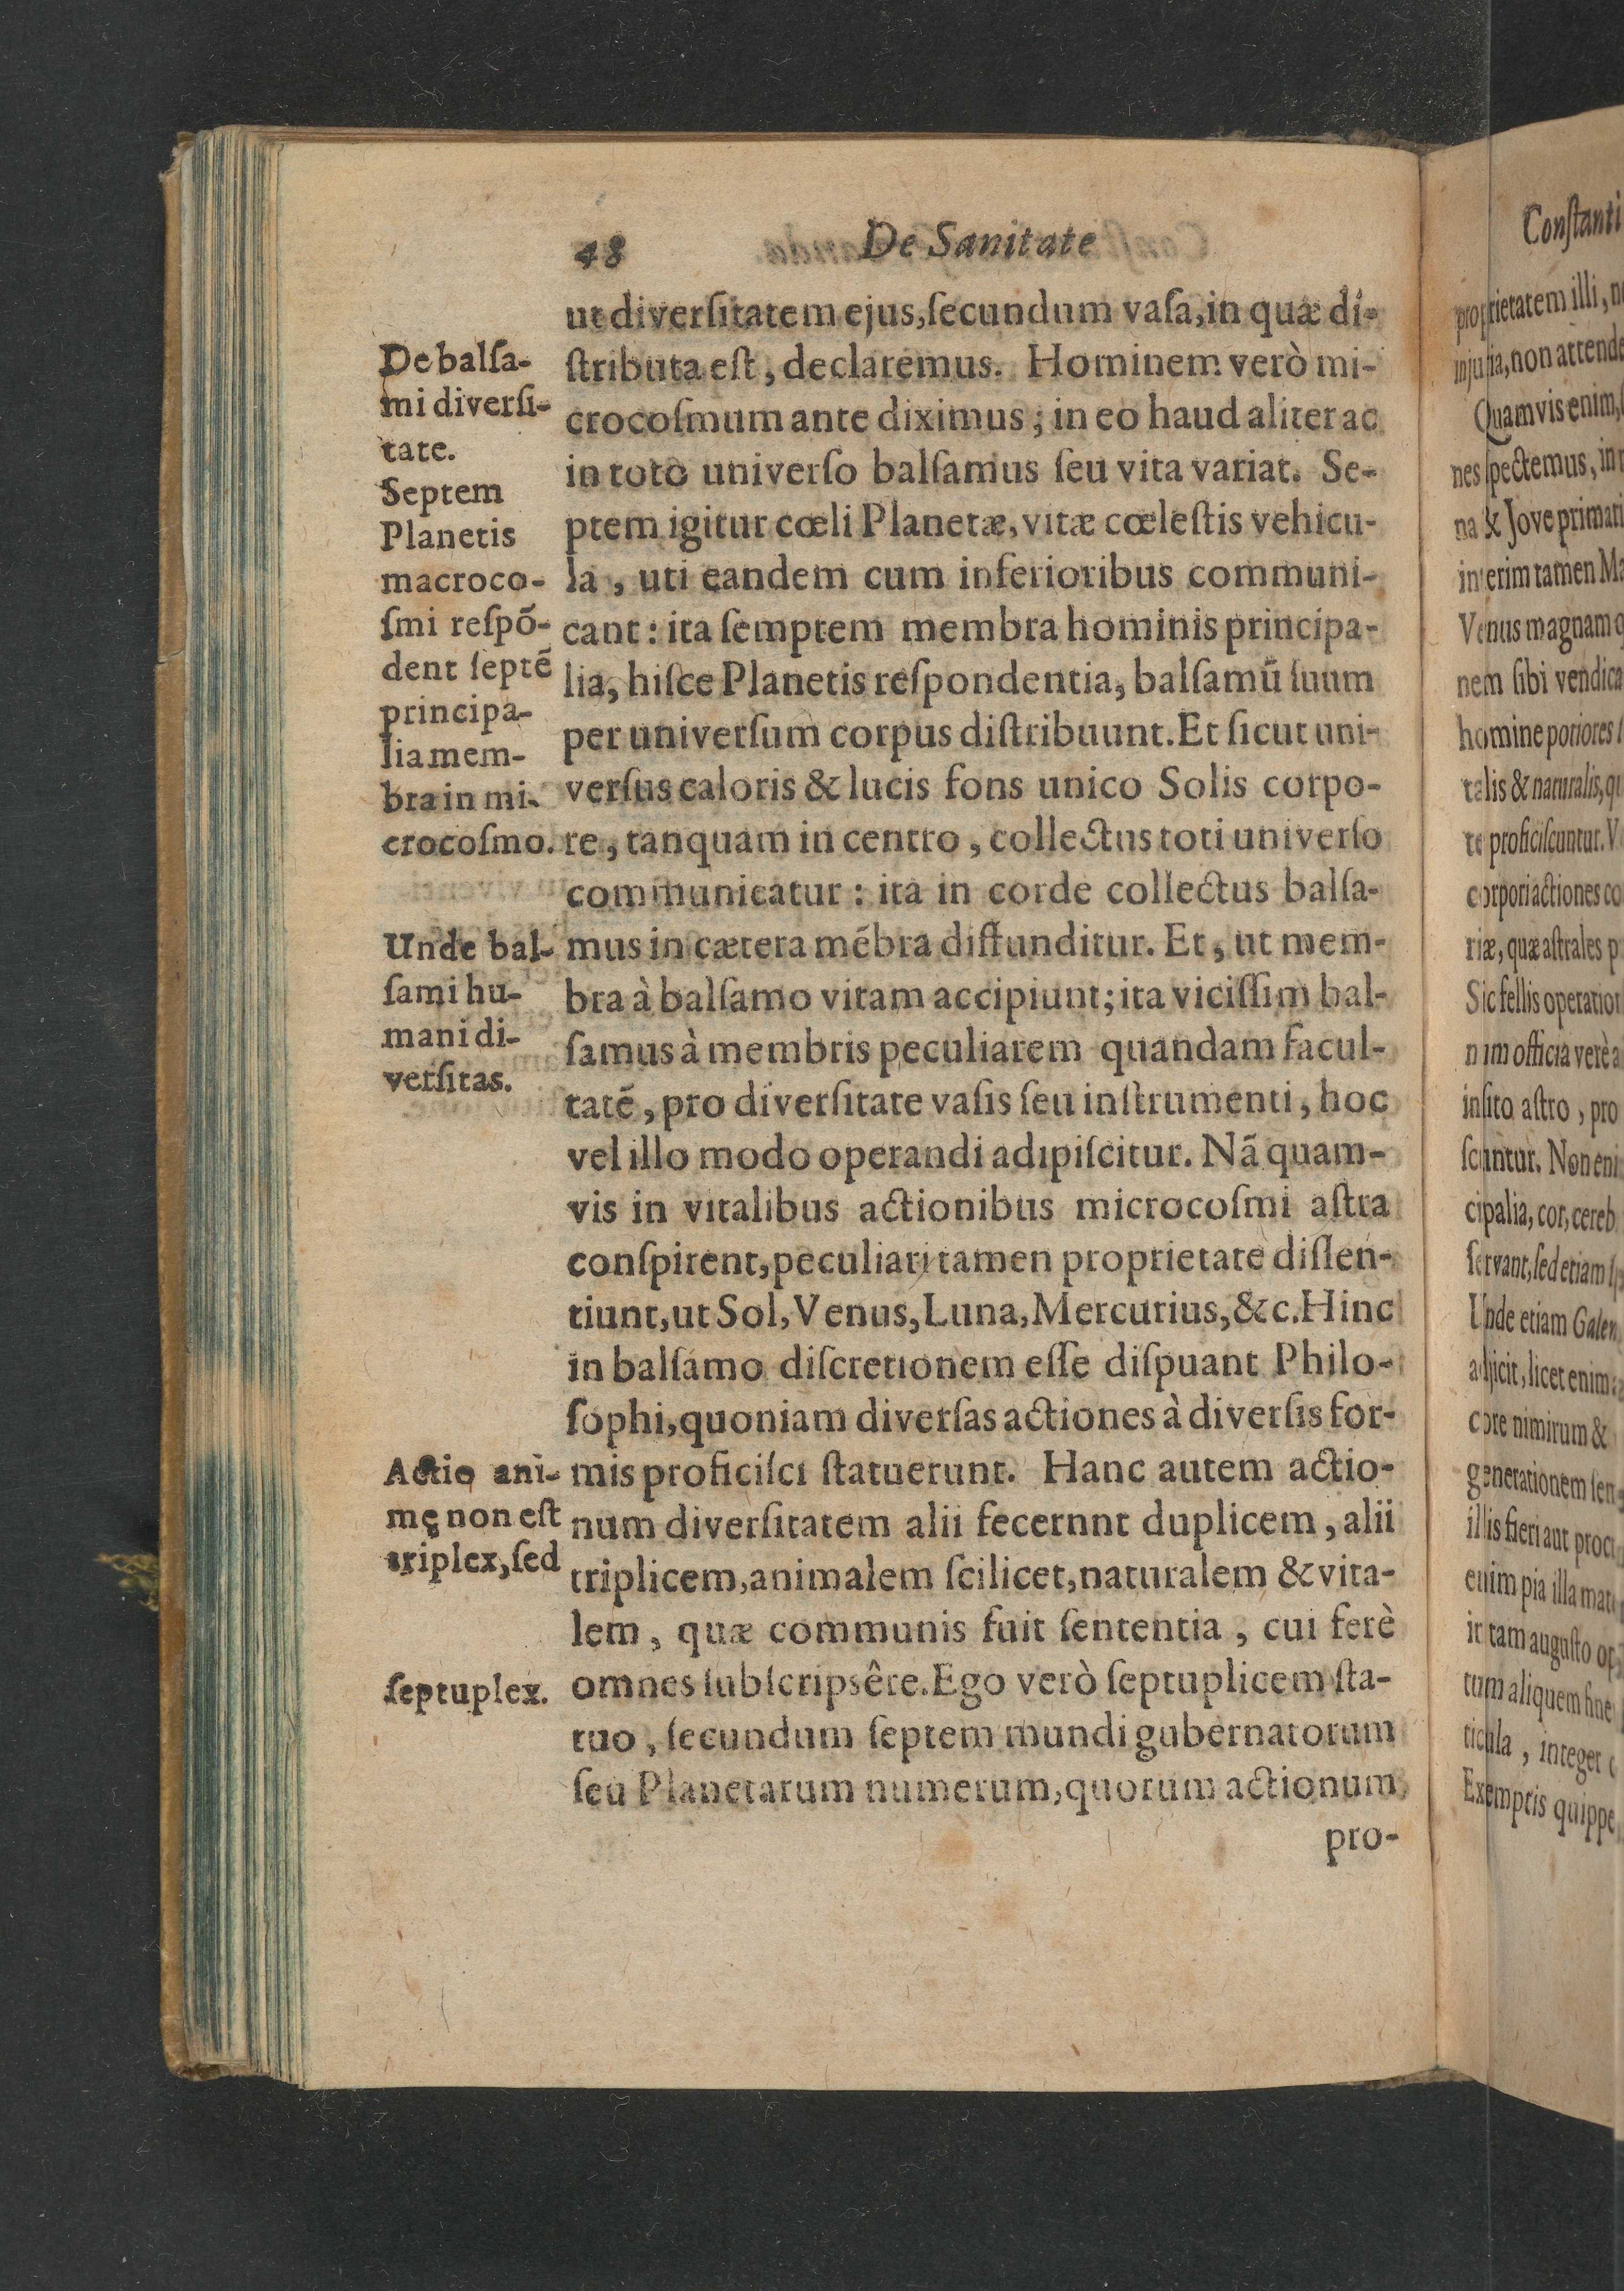 48 De Sanitate
ut diverſitatem ejus, ſecundum vaſa, in quæ di-
ſtributa eſt, declaremus. Hominem verò mi-
crocoſmum ante diximus; in eo haud aliter ac
in toto univerſo balſamus ſeu vita variat. Se-
ptem igitur cœli Planetæ, vitæ cœleſtis vehicu-
la, uti eandem cum inferioribus communi-
cant: ita ſemptem membra hominis principa-
lia, hiſce Planetis reſpondentia, balſamũ ſuum
per univerſum corpus diſtribuunt. Et ſicut uni-
verſus caloris & lucis fons unico Solis corpo-
re, tanquam in centro, collectus toti univerſo
communicatur: ita in corde collectus balſa-
mus in cætera mẽbra diffunditur. Et, ut mem-
bra à balſamo vitam accipiunt; ita viciſſim bal-
ſamus à membris peculiarem quandam facul-
tatẽ, pro diverſitate vaſis ſeu inſtrumenti, hoc
vel illo modo operandi adipiſcitur. Nã quam-
vis in vitalibus actionibus microcoſmi aſtra
conſpirent, peculiari tamen proprietate diſſen-
tiunt, ut Sol, Venus, Luna, Mercurius, &c. Hinc
in balſamo diſcretionem eſſe diſpuant Philo-
ſophi, quoniam diverſas actiones à diverſis for-
mis proficiſci ſtatuerunt. Hanc autem actio-
num diverſitatem alii fecernnt duplicem, alii
triplicem, animalem ſcilicet, naturalem & vita-
lem, quæ communis fuit ſententia, cui ferè
omnes ſubſcripsêre. Ego verò ſeptuplicem ſta-
tuo, ſecundum ſeptem mundi gubernatorum
ſeu Planetarum numerum, quorum actionum
pro-
De balſa-
mi diverſi-
tate.
Septem
Planetis
macroco-
ſmi reſpõ-
dent ſeptẽ
principa-
lia mem-
bra in mi-
crocoſmo.
Unde bal-
ſami hu-
mani di-
verſitas.
Actio ani-
mę non eſt
triplex, ſed
ſeptuplex.
Conſtanti
proprietatem illi,
injuria, non attende
Quamvis enim,
nes ſpectemus, in
na & Jove primat
interim tamen Ma
Venus magnam
nem ſibi vendica
homine potiores
talis & naturalis, qu
te proficiſcuntur. V
corpori actiones co
riæ, quæ aſtrales p
Sic fellis operation
nim officia verè a
inſito aſtro, pro
ſcuntur. Non eni
cipalia, cor, cereb
ſervant, ſed etiam
Unde etiam Galen
adjicit, licet enim
core nimirum &
generationem ſen
illis fieri aut proc
enim pia illa mat
in tam auguſto op
tum aliquem fine
ticula, integer
Exemptis quippe